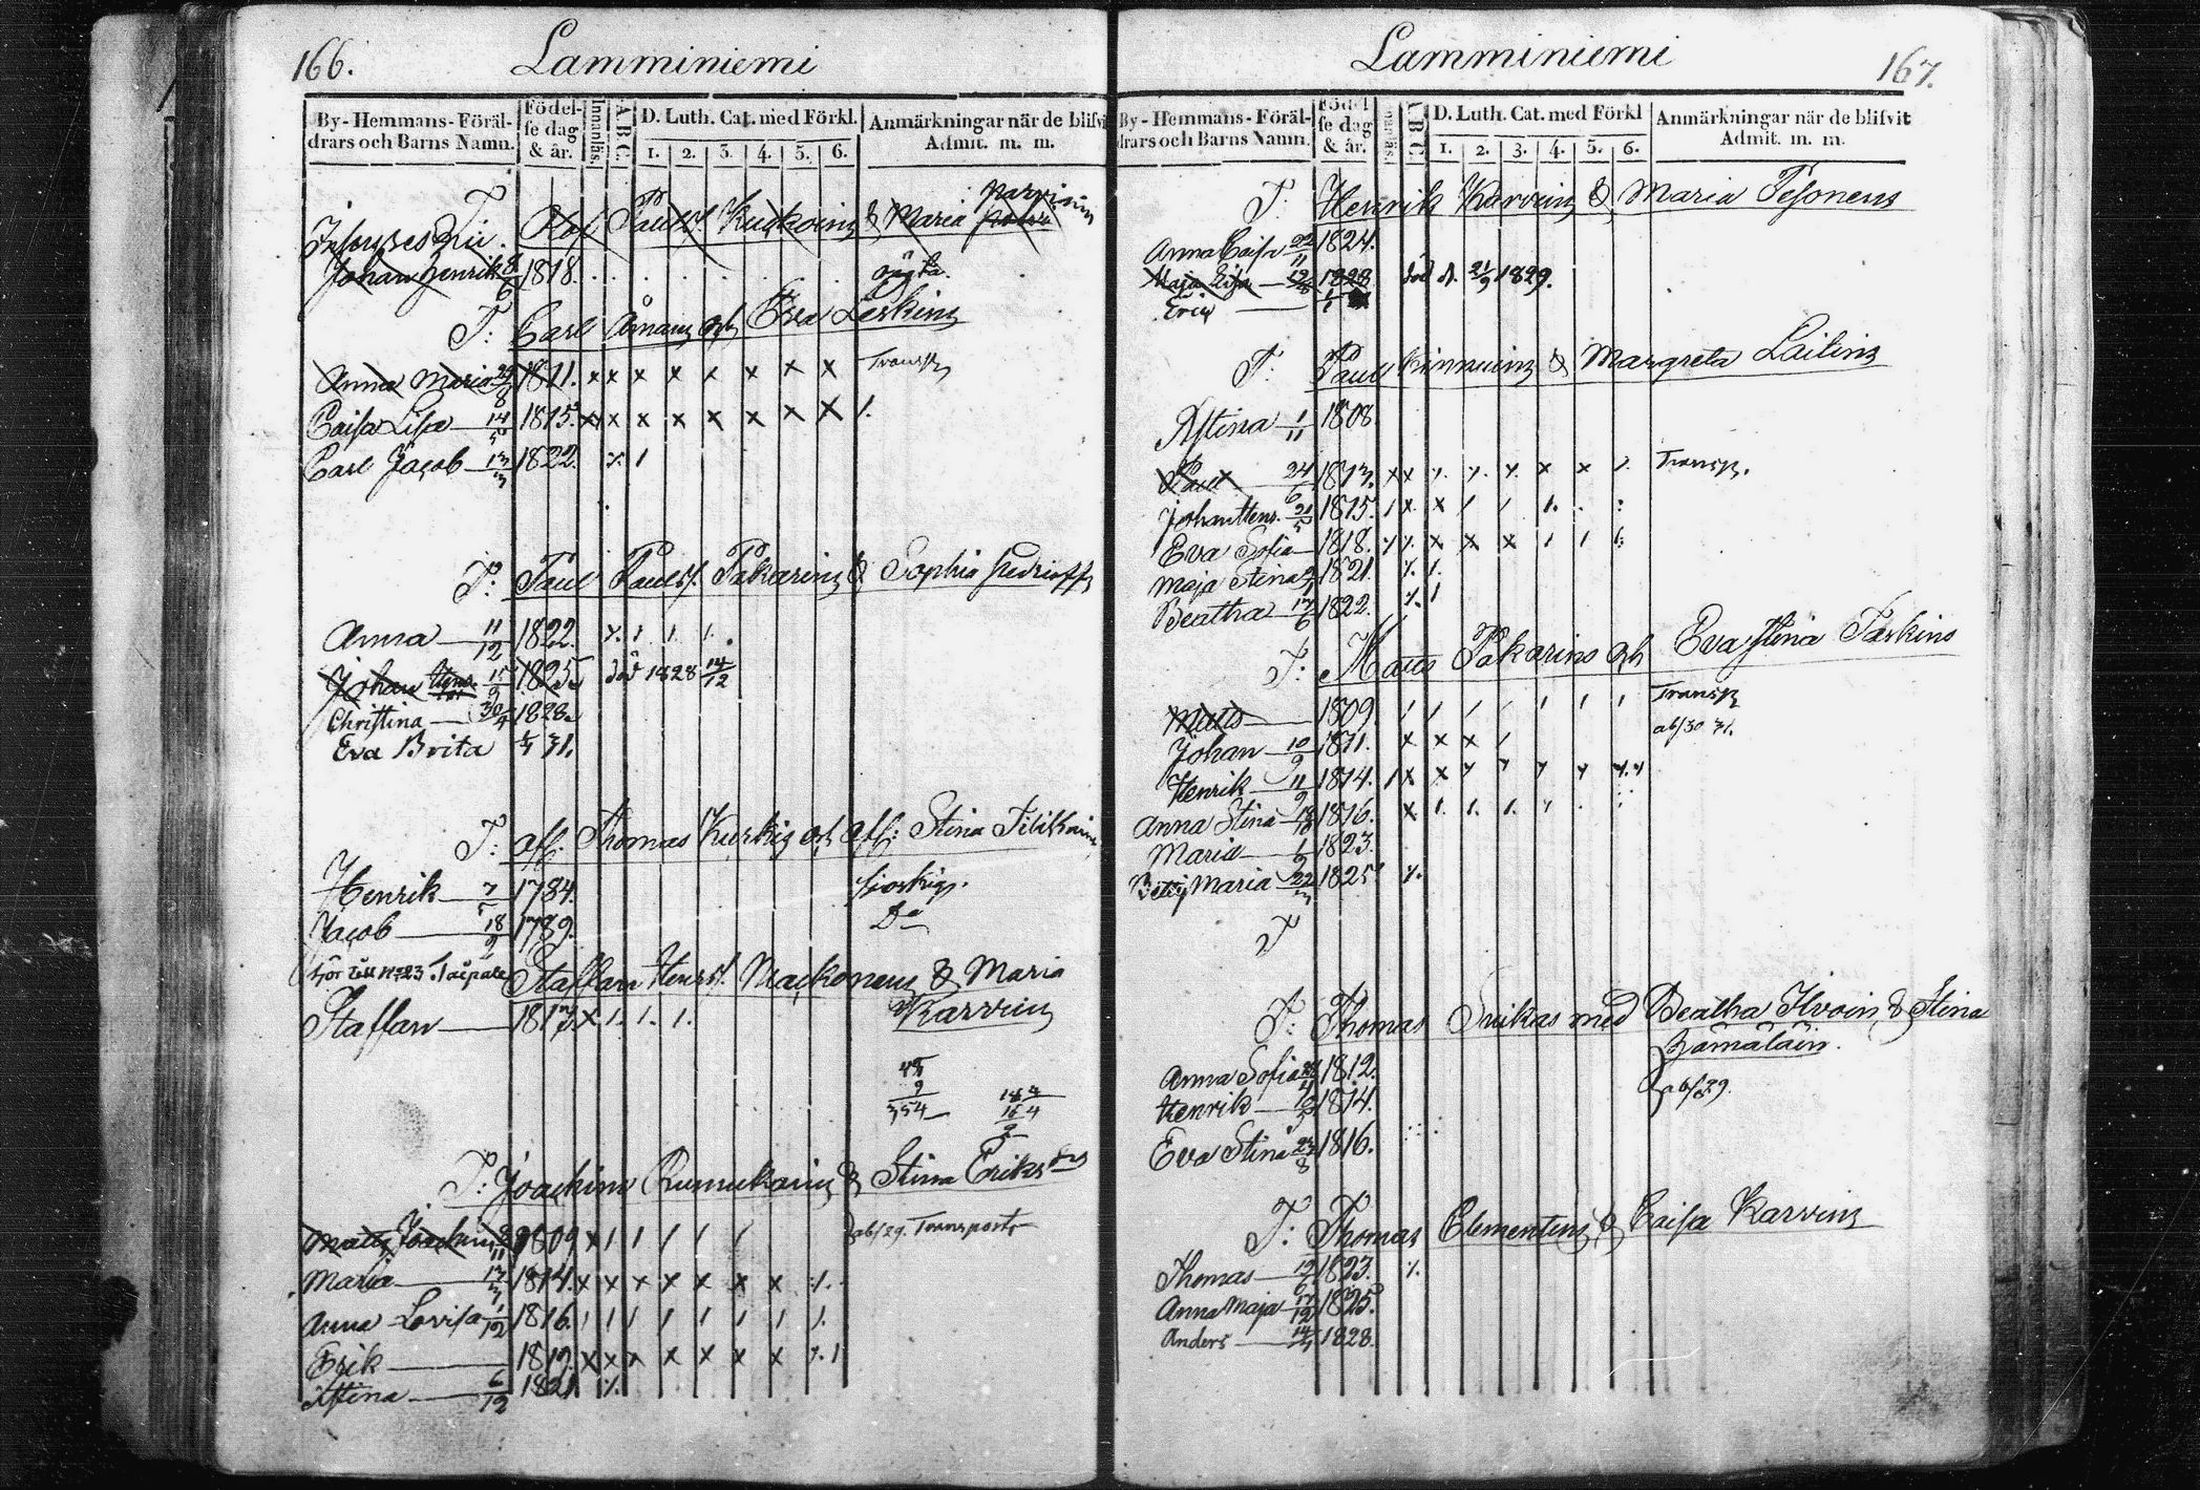 166.
Lamminiemi
By-Hemmans-Föräl-
drars och Barns Namn.
Födel-
se dag
& år.
Innanläs.
A.B.C.
D. Luth. Cat. med Förkl.
1. 2. 3. 4. 5. 6.
Anmärkningar när de blifvit
Admit. m. m.
T.
Olof Paulsf. & Maria
Johan Henrik 8/6 1818.
T: Carl Åman och Eva Leskin
Anna Maria 29/8 1811. x x x x x x x x Transp
Caisa Lisa 14/5 1815. x x x x x x x x 1.
Carl Jacob 13/3 1822. 1
T: Paul Paulsf. Pakarin & Sophia
Anna 11/12 1822. 1 1. 1.
Johan Henr. 15/9 1825 död 1828 14/12
Christina 30/4 1828.
Eva Brita 31.
T: afl. Thomas Kurki och afl: Stina
Henrik 7/5 1784.
Jacob 18/9 1789. Do
hör till No 23 Taipale Staffan Henrsf. Mackonen & Maria
Karvin
Staffan 1817. x 1. 1. 1.
9
354
16 4
T: Joachim & Stina Eriksdr
Matts Joachim 1809 x 1 1 1 1 1 1 ab/29. Transport
Maria 13/3 1814. x x x x x x x
Anna Lovisa 1/12 1816. 1 1 1 1 1 1 1 1.
Erik 1819. x x x x x x x 1
Stina 6/12 1821.
Lamminiemi
167.
By-Hemmans-Föräl-
drars och Barns Namn.
Födel-
se dag
& år.
A.B.C.
D. Luth. Cat. med Förkl
1. 2. 3. 4. 5. 6.
Anmärkningar när de blifvit
Admit. m. m.
T: Henrik Karvin & Maria Pesonen
Anna Caisa 22/11 1824.
Maja Lisa 12/8 1828 död d. 21/9 1829.
Eric 1/1
T: Paul Kinnuin & Margreta Laitin
Stina 1/11 1808.
Paul 24/6 1813. x x x x Transp.
Johan Henr. 21/5 1815. 1 x x 1 1 1.
Eva Sofia 1818. x x x 1 1
Maja Stina 1821.
Beatha 17/6 1822. 1
T: Matts Pakarin och Eva Stina Parkin
Matts 1809. 1 1 1 1 1 1 1 Transp
Johan 10/9 1811. x x x 1 ab/30 31.
Henrik 11/9 1814. 1 x x
Anna Stina 1816. x 1. 1. 1.
Maria 1/9 1823.
Maria 22/3 1825
T
T: Thomas Suikas med Beatha Ilvoin & Stina
Hämäläin.
Anna Sofia 1812.
Henrik 1814. ab/29.
Eva Stina 23/8 1816.
T: Thomas Clementin & Caisa Karvin
Thomas 19/6 1823.
Anna Maja 17/12 1825.
Anders 1828.